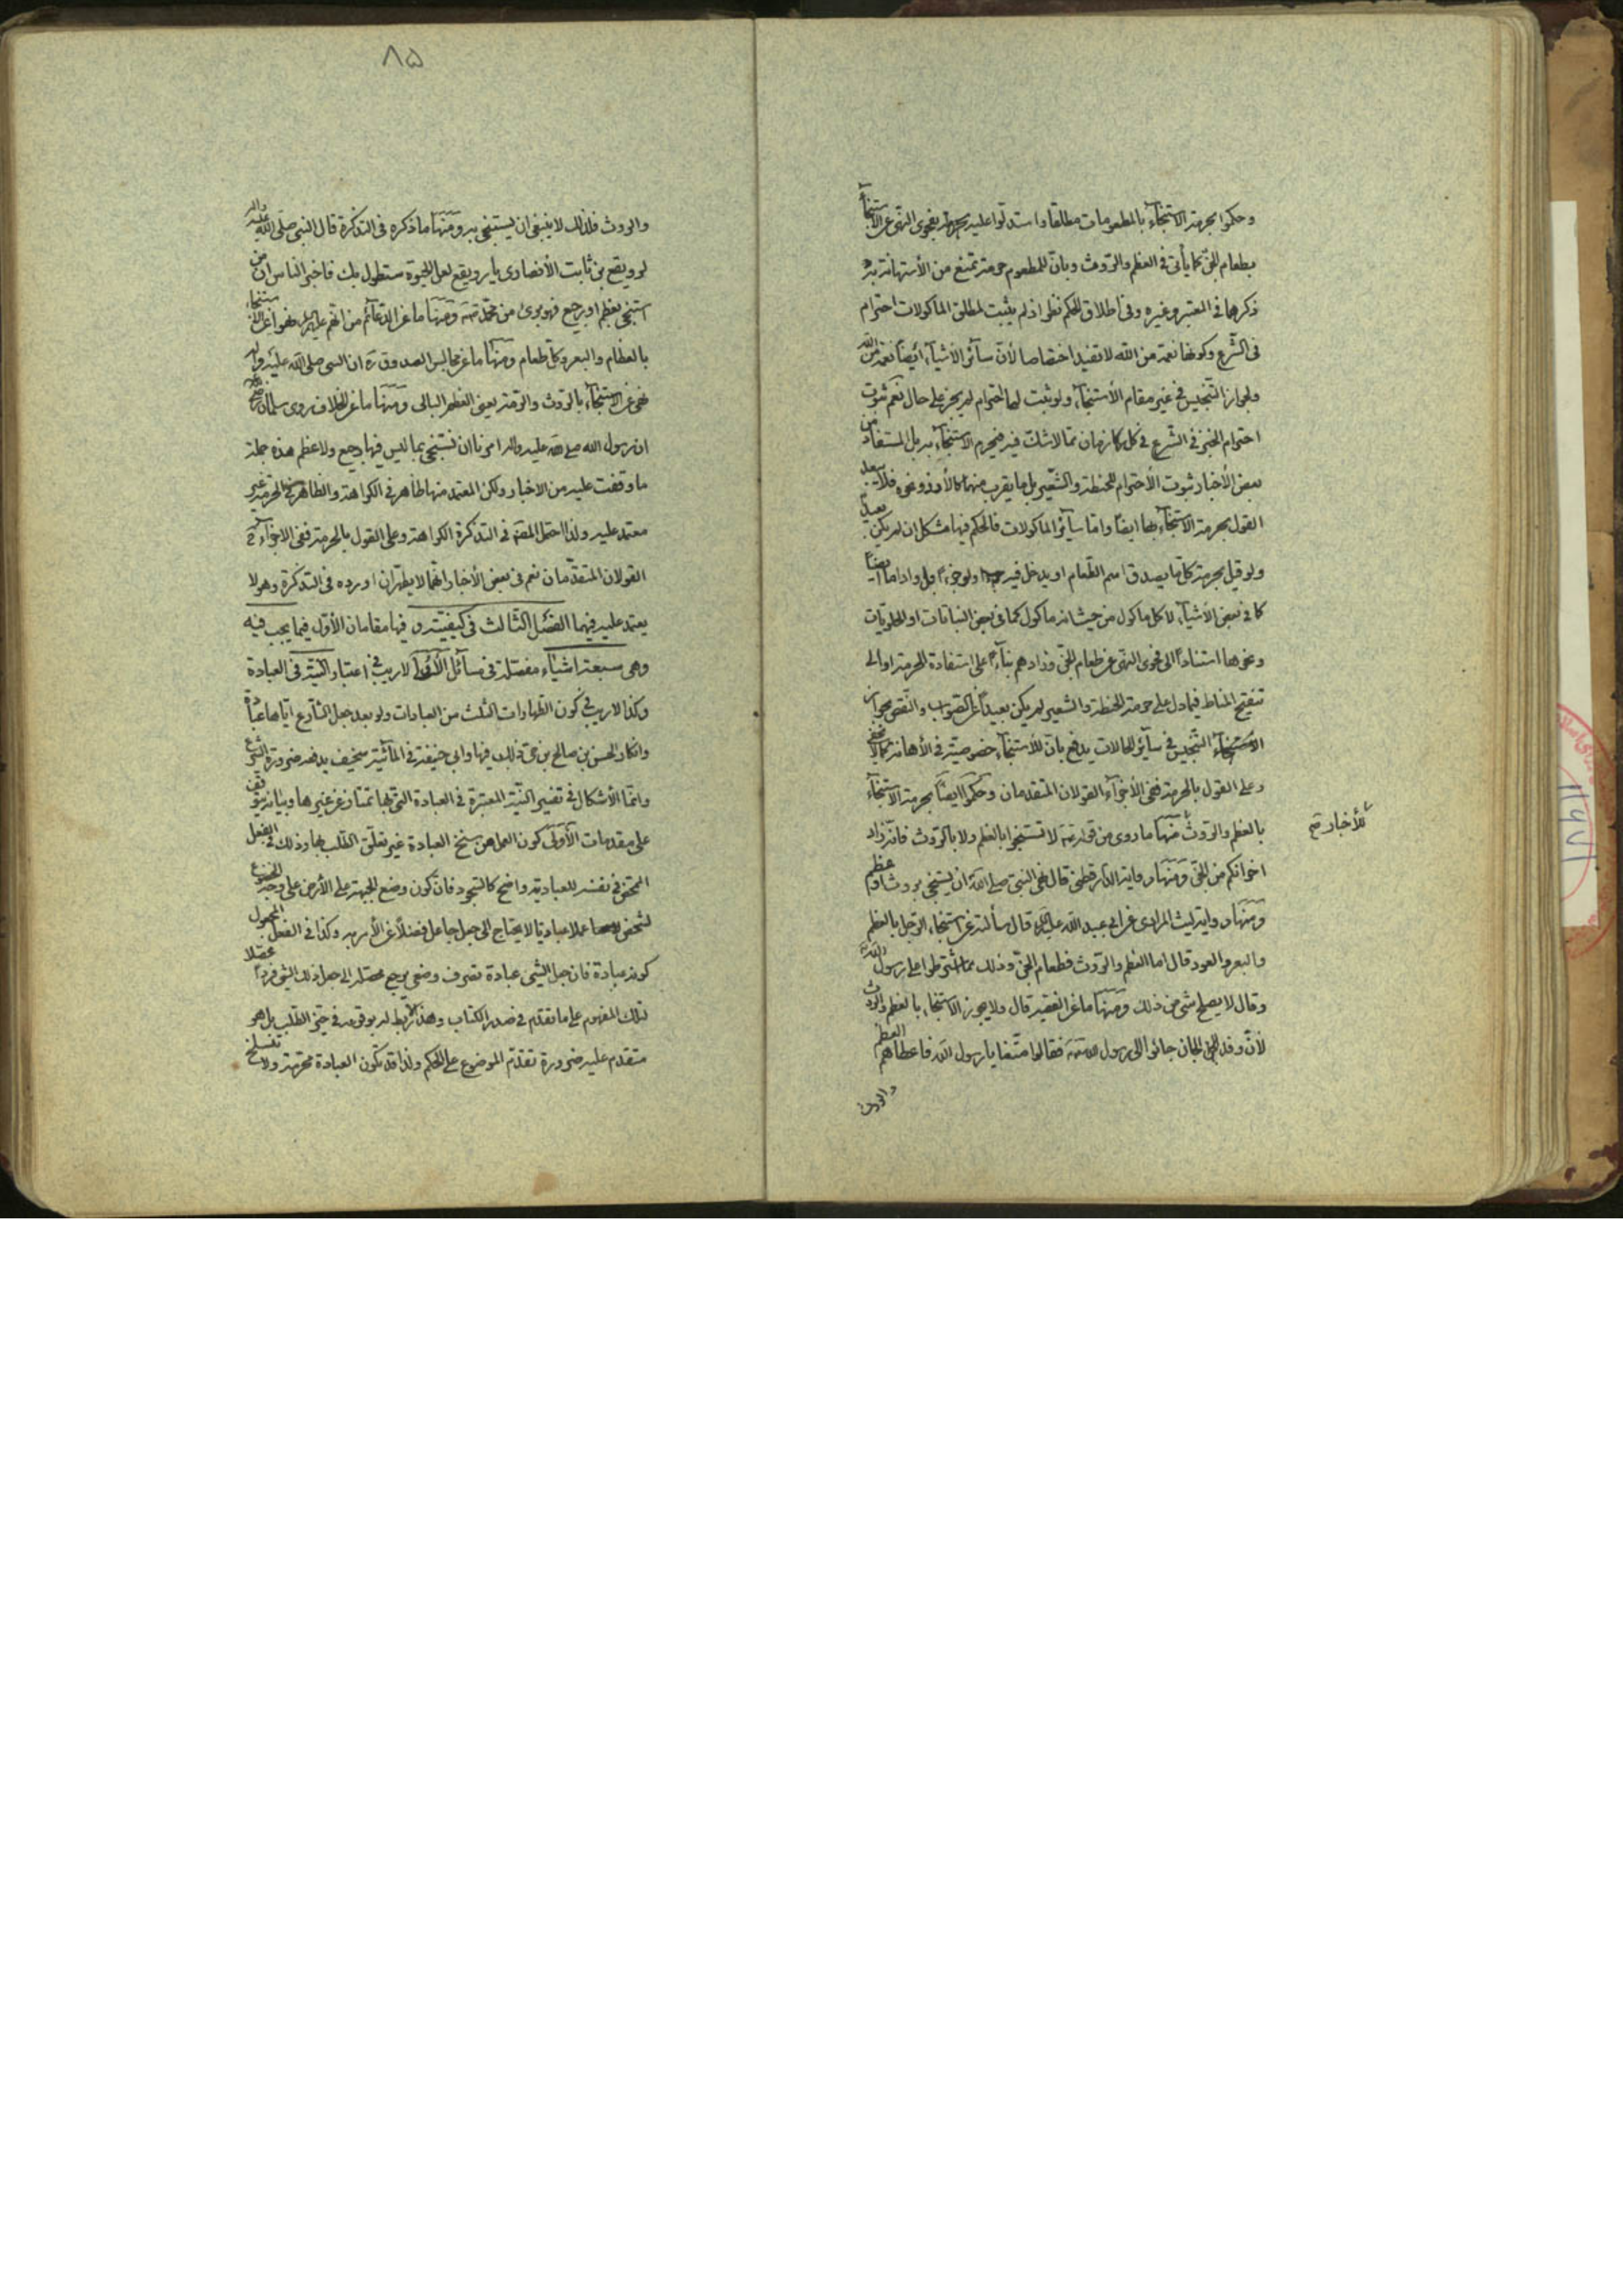 وحكموا بحرمة الاستنجاء بالمطعومات مطلقا واستدلوا عليه بفحوى النهى عن الاستنجاء
بطعام الجن كما يأتى فى العظم والروث وبان للمطعوم حرمة تمنع من الأستهانة به
ذكرهما فى المعتبر وغيره وفى اطلاق الحكم نظر اذ لم يثبت لمطلق المأكولات احترام
فى الشرع وكونها نعمة من الله لا تفيد اختصاصا لأن سائر الأشياء ايضا نعمة من الله
ولجواز التنجيس فى غير مقام الأستنجاء ولو ثبت لها احترام لم يجز على حال نعم ثبوت
احترام الخبز فى الشرع فى كل زمان مما لا شك فيه فيحرم الاستنجاء به بل المستفاد من
بعض الأخبار ثبوت الأحترام للحنطة والشعير بل ما يقرب منهما كالأرز ونحوه فلا يبعد
القول بحرمة الاستنجاء بها ايضا واما سائر المأكولات فالحكم فيها مشكل ان لم يكن
ولو قيل بحرمة كل ما يصدق اسم الطعام او يدخل فيه ولو جزءا بل واداما ايضا
كما فى بعض الأشياء لا كل مأكول من حيث انه مأكول كما فى بعض النباتات او الحلويات
ونحوها استنادا الى فحوى النهى عن طعام الجن وزادهم بناء على استفادة الحرمة او الى
تنقيح المناط فيما دل على حرمة الحنطة والشعير لم يكن بعيدا عن الصواب والنقض بجواز
التنجيس فى سائر الحالات يدفع بان للأستنجاء خصوصية فى الأهانة كما لا يخفى
وعلى القول بالحرمة ففى الأجزاء القولان المتقدمان وحكموا ايضا بحرمة الاستنجاء
بالعظم والروث منها ما روى من قوله لا تستنجوا بالعظم ولا بالروث فانه زاد
للأخبار صح
اخوانكم من الجن ومنها رواية الدار قطنى قال نهى النبى صلى الله ان يستنجى بروث او عظم
ومنها رواية ليث المرادى عن ابى عبد الله عليه قال سألته عن استنجاء الرجل بالعظم
والبعر والعود قال اما العظم والروث فطعام الجن وذلك مما اشترطوا على رسول الله
وقال لا يصلح بشى من ذلك ومنها ما عن الفقيه قال ولا يجوز الاستنجاء بالعظم والروث
لأن وفد الجان جائوا الى رسول الله فقالوا متعنا يا رسول الله فاعطاهم العظم
والروث
٨٥
والروث فلذلك لا ينبغى ان يستنجى به ومنها ما ذكره فى التذكرة قال النبى صلى الله عليه واله
لرويفع بن ثابت الأنصارى يا رويفع لعل الحيوة ستطول بك فاخبر الناس ان من
استنجى بعظم او رجيع فهو برئ من محمد ومنها ما عن الدعائم من انهم نهوا عن الاستنجاء
بالعظام والبعر وكل طعام ومنها ما عن مجالس الصدوق ره ان النبى صلى الله عليه واله
نهى عن الاستنجاء بالروث والرمة يعنى العظم البالى ومنها ما عن الخلاف روى سلمان
ان رسول الله صلى الله عليه واله امرنا ان نستنجى بما ليس فيها رجيع ولا عظم هذه جملة
ما وقفت عليه من الاخبار ولكن المعتمد منها ظاهر فى الكراهة والظاهر فى الحرمة غير
معتمد عليه ولذا احتمل المصنف فى التذكرة الكراهة وعلى القول بالحرمة ففى الاجزاء
القولان المتقدمان نعم فى بعض الأخبار انهما لا يطهران اورده فى التذكرة وهو لا
يعتمد عليه فيهما الفصل الثالث فى كيفيته و فيها مقامان الأول فيما يجب فيه
وهى سبعة اشياء مفصلة فى مسائل الأولى لا ريب فى اعتبار النية فى العبادة
وكذا لا ريب فى كون الطهارات الثلث من العبادات ولو بعد جعل الشارع اياها عبادة
وانكار الحسن بن صالح بن حى ذلك فيها وابى حنيفة فى المائية سخيف يدفعه ضرورة الشرع
وانما الأشكال فى تفسير النية المعتبرة فى العبادة التى بها تمتاز عن غيرها وبيانه يتوقف
على مقدمات الأولى كون العمل من سنخ العبادة غير تعلق الطلب بها وذلك فى الفعل
المحقق فى نفسه للعبادية واضح كالسجود فان كون وضع الجبهة على الأرض على وجه الخضوع
لشخص عملا عباديا لا يحتاج الى جعل جاعل فضلا عن الأمر به وكذا فى الفعل المجعول
كونه عبادة فان جعل الشئ عبادة تصرف وضعى يرجع محصله الى جعل ذلك الشئ فردا محصلا
لذلك المفهوم على ما تقدم فى صدر الكتاب وهذا لا ربط له بوقوعه فى حيز الطلب بل هو
متقدم عليه ضرورة تقدم الموضوع على الحكم ولذا قد تكون العبادة محرمة ولا تنسلخ